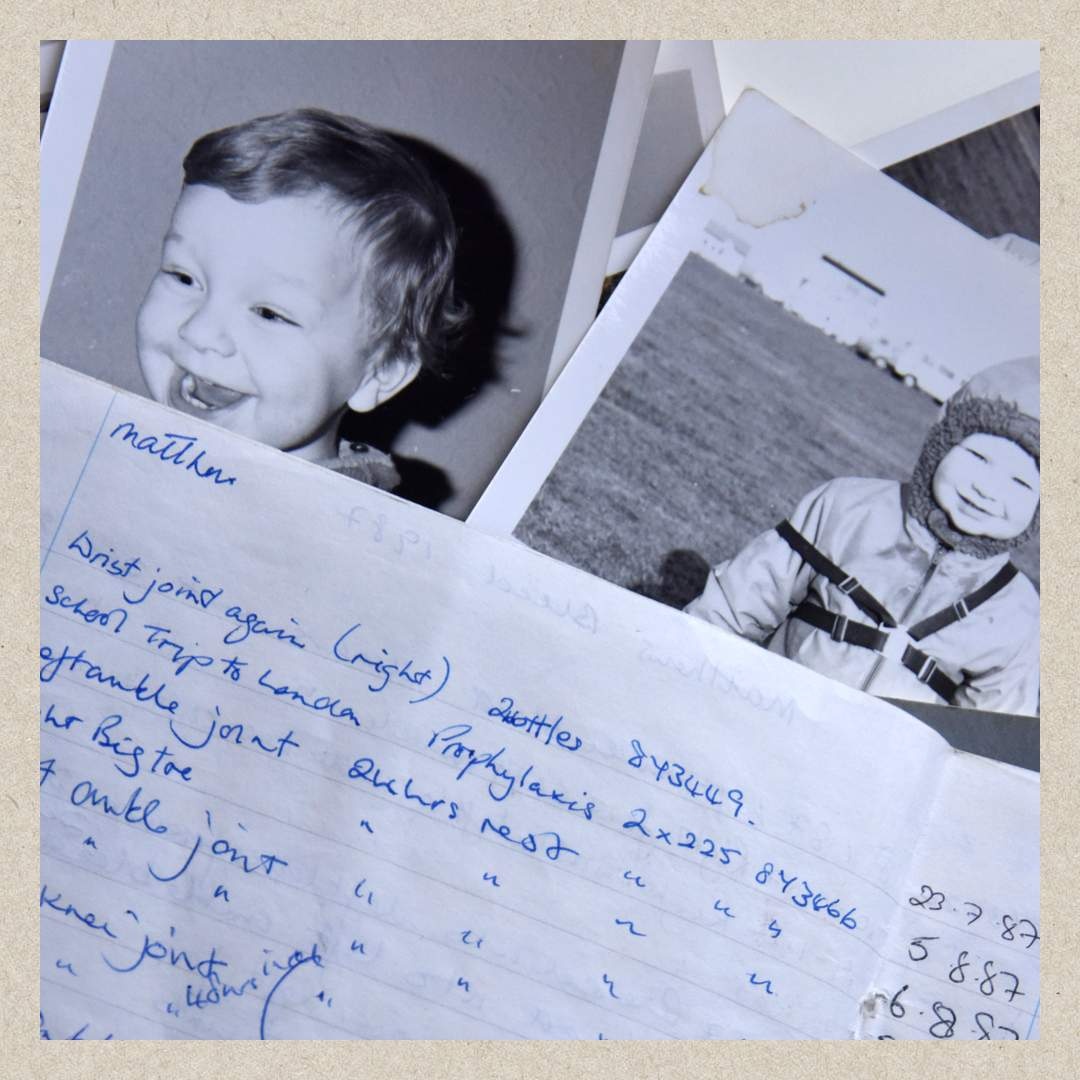 matthew
Wrist joint again (right) 2 bottles 843449.
School Trip to London Prophylaxis 2x225 843466
ankle joint 24hrs rest " " "
Big toe " " " "
ankle joint " " " "
" " " " "
knee joint
" 4 hours "
23.7.87
5 8.87
6.8.87
1987